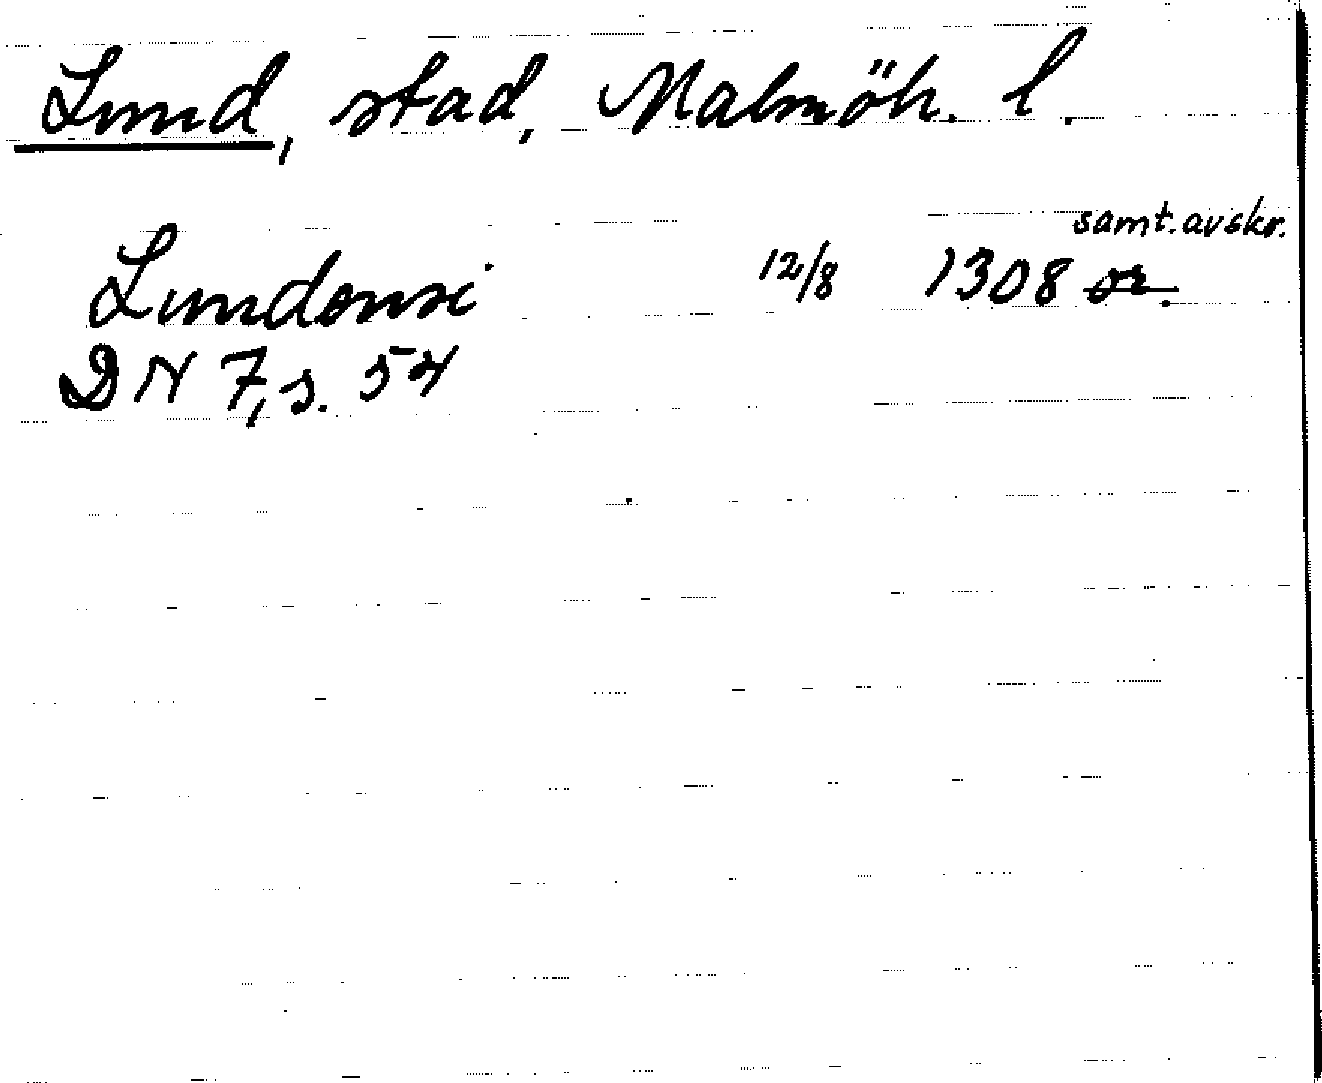 Lund, stad, Malmöh. l.
samt. avskr.
Lundensi 12/8 1308 or.
DN 7, s. 54